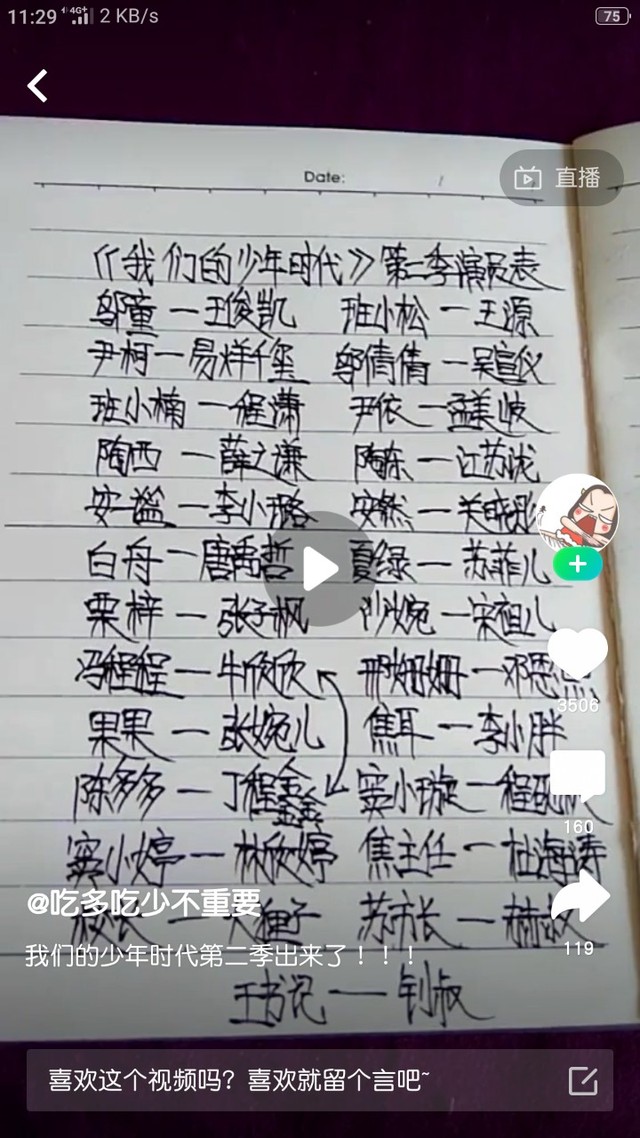 11:29 4G+ 2 KB/s 75
Date:
直播
《我们的少年时代》第二季演员表
邬童一王俊凯 班小松一王源
尹柯一易烊千玺 邬倩倩一吴宣仪
班小楠一程潇 尹依一孟美岐
陶西一薛之谦 陶东一江苏泷
安谧一李小璐 安然一关晓彤
白舟一唐禹哲 夏绿一苏菲儿
栗梓一张子枫 沙婉一宋祖儿
冯程程一牛欣欣 邢姗姗一邓恩熙
果果一张婉儿 焦耳一李小胖
3506
陈多多一丁程鑫 窦小璇一程
160
窦小婷一林欣婷 焦主任一杜海涛
@吃多吃少不重要
校长一 苏市长一赫叔
119
我们的少年时代第二季出来了！！！
王书记一钊叔
喜欢这个视频吗？喜欢就留个言吧~